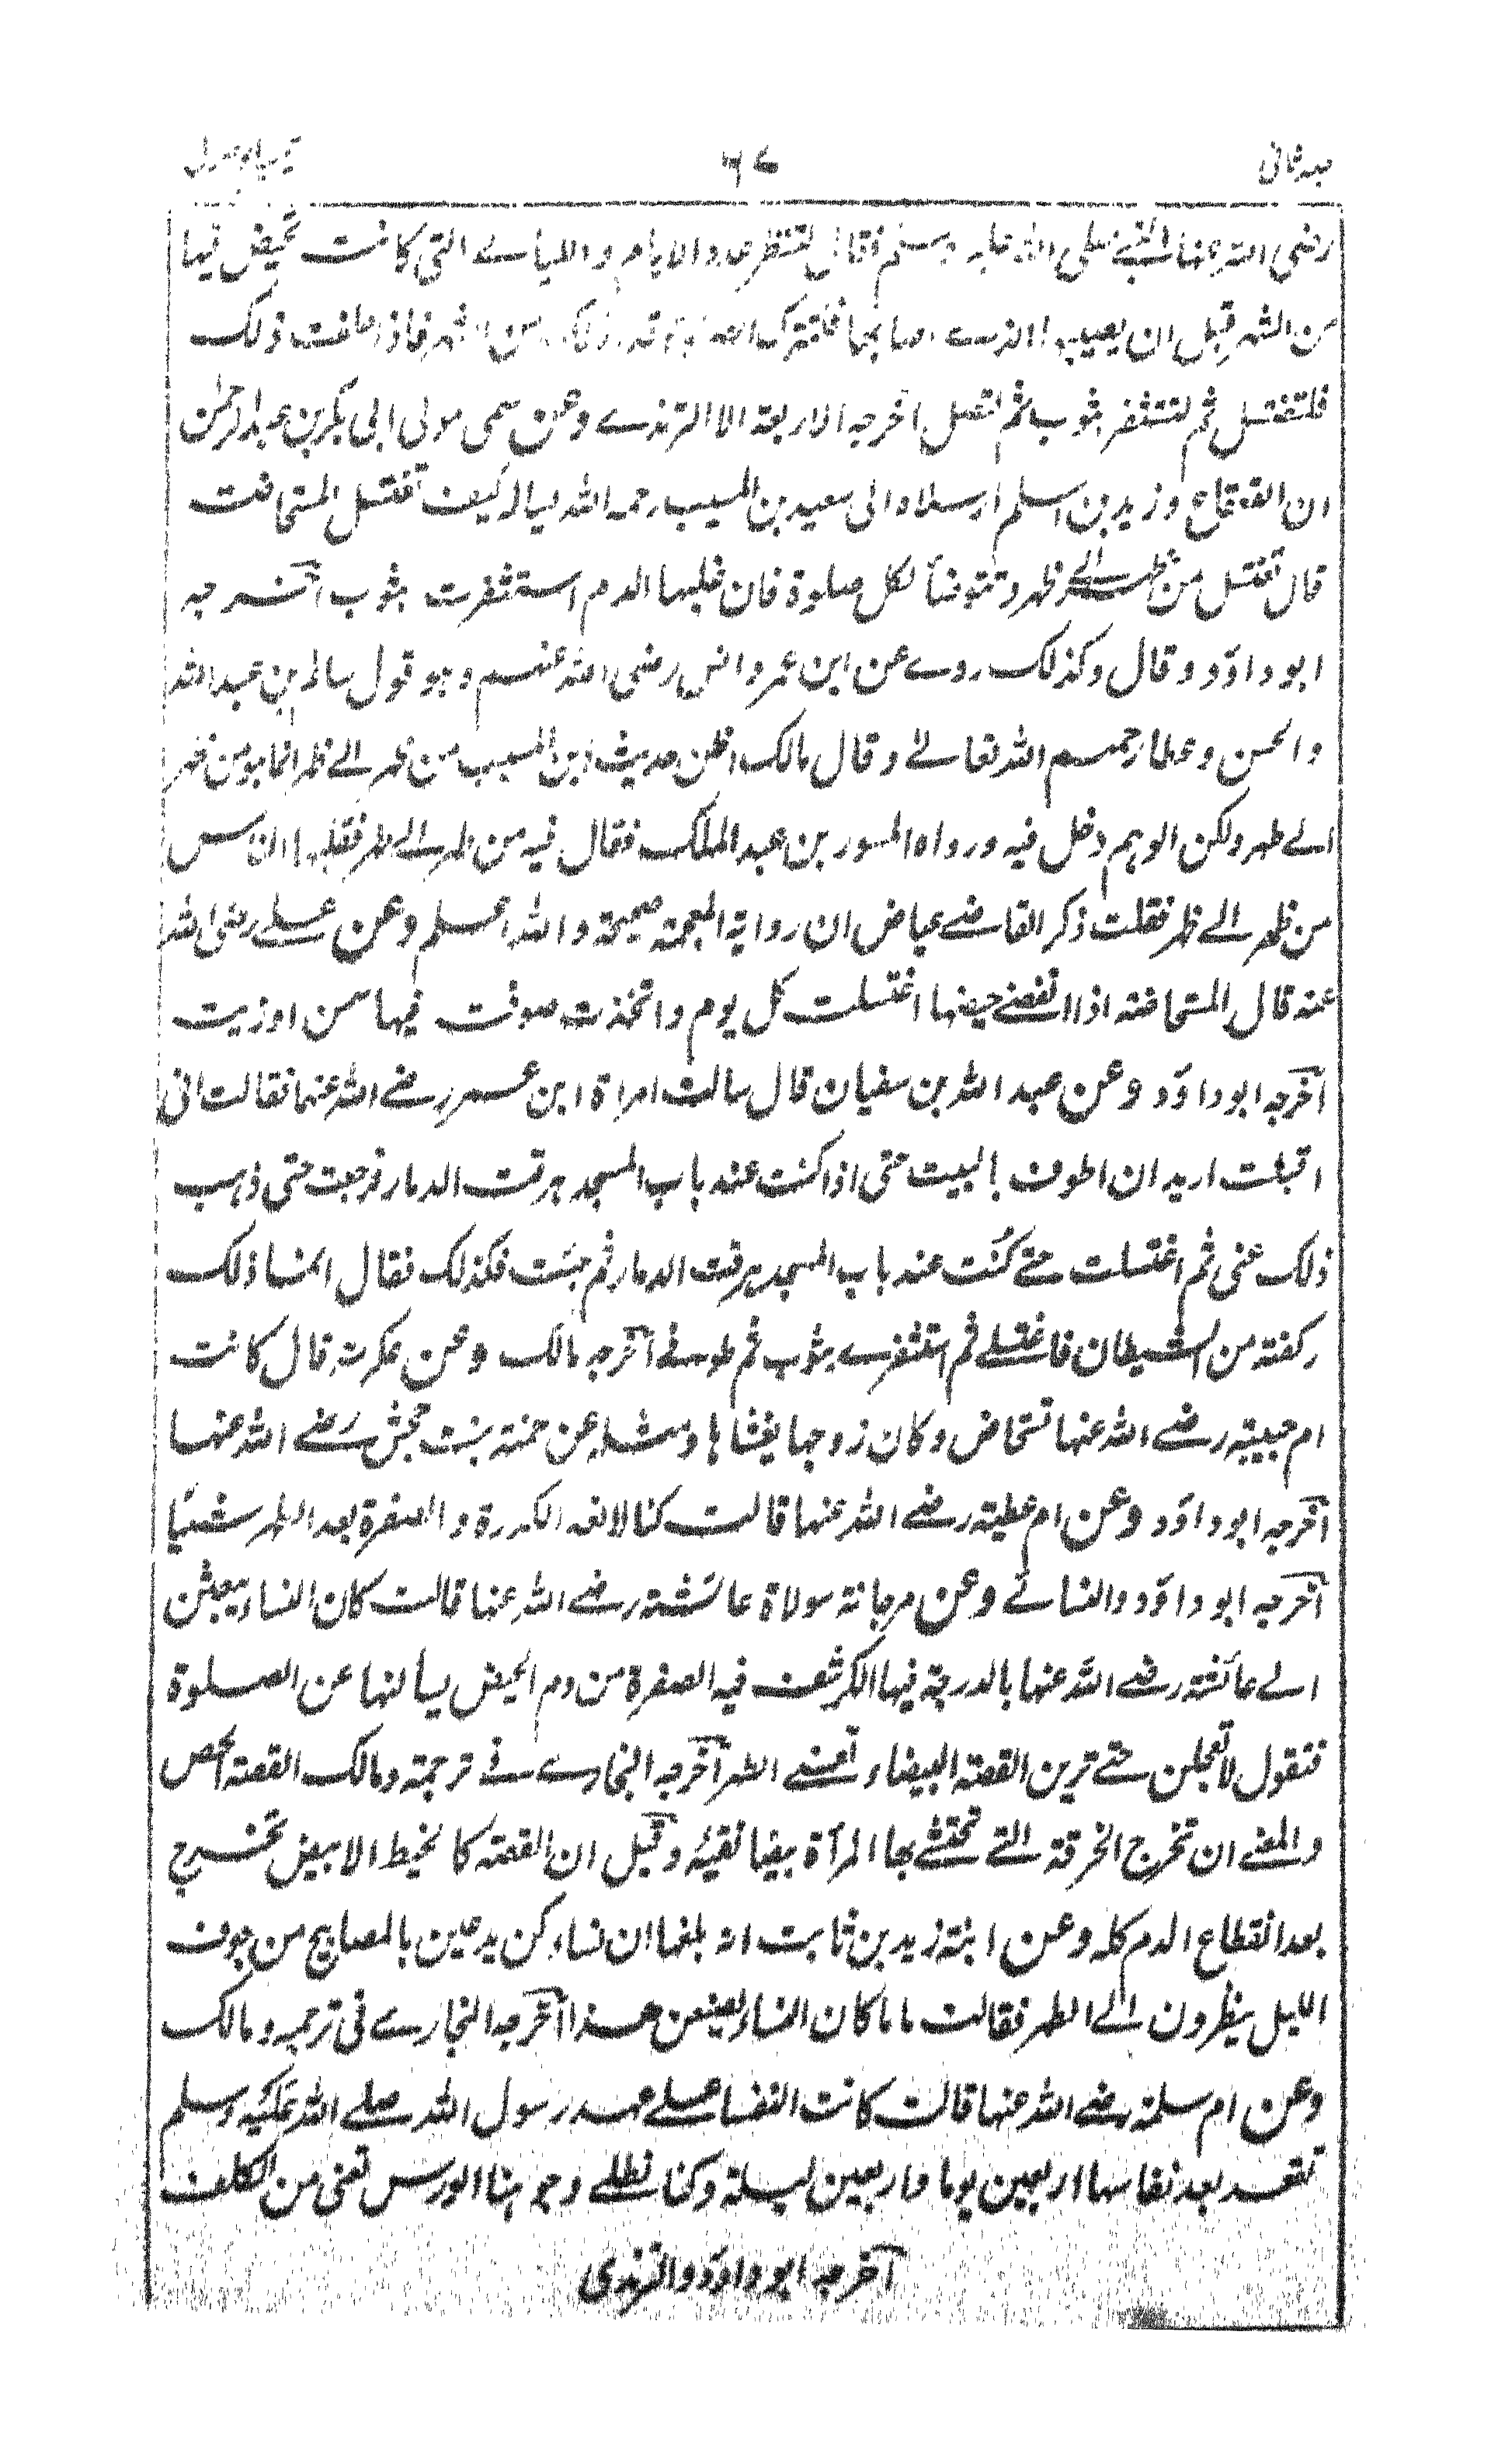 جلد ثانی ۶۷ تیسیر الوصول
رضی اللہ عنہا النبی صلی اللہ علیہ وسلم فقال لتنظر عدد الایام واللیالے التی کانت تحیض فیہا
من الشہر قبل ان یصیبہا الذے اصابہا فلتترک الصلوۃ قدر ذلک من الشہر فاذا خلفت ذلک
فلتغتسل ثم لتستثفر بثوب ثم لتصل اخرجہ الاربعۃ الا الترمذے وعن سمی مولی ابی بکر بن عبدالرحمٰن
ان القعقاع وزید بن اسلم ارسلاہ الی سعید بن المسیب رحمہ اللہ یسالہ کیف تغتسل المستحاضت
قال تغتسل من ظہر الے ظہر وتتوضأ لکل صلوۃ فان غلبہا الدم استثفرت بثوب اخرجہ
ابو داوٗد وقال وکذلک روے عن ابن عمر وانس رضی اللہ عنہم وہو قول سالم بن عبداللہ
والحسن وعطا رحمہم اللہ تعالے وقال مالک اظن حدیث ابن المسیب من ظہر الے ظہر انما ہو من طہر
الے طہر ولکن الوہم دخل فیہ ورواہ المسور بن عبدالملک فقال فیہ من طہر الے طہر فقلبہا الناس
من ظہر الے ظہر فقلت ذکر القاضے عیاض ان روایۃ المعجمۃ صحیحۃ واللہ اعلم وعن علے رضی اللہ
عنہ قال المستحاضۃ اذا انقضے حیضہا اغتسلت کل یوم واتخذت صوفت فیہا سمن او زیت
اخرجہ ابو داوٗد وعن عبد اللہ بن سفیان قال سالت امراۃ ابن عمر رضے اللہ عنہما فقالت انی
اقبلت ارید ان اطوف بالبیت حتی اذا کنت عند باب المسجد ہرقت الدما فرجعت حتی ذہب
ذلک عنی ثم اغتسلت حتے کنت عند باب المسجد ہرقت الدما ثم جئت فکذلک فقال انما ذلک
رکضۃ من الشیطان فاغتسلے ثم استثفرے بثوب ثم طوفے اخرجہ مالک وعن عکرمۃ قال کانت
ام حبیبۃ رضے اللہ عنہا تستحاض وکان زوجہا یغشاہا ومثلہ عن حمنۃ بنت جحش رضے اللہ عنہا
اخرجہ ابو داوٗد وعن ام عطیۃ رضے اللہ عنہا قالت کنا لا نعد الکدرۃ والصفرۃ بعد الطہر شیئا
اخرجہ ابو داوٗد والنسائے وعن مرجانۃ مولاۃ عائشۃ رضے اللہ عنہا قالت کان النساء یبعثن
الے عائشۃ رضے اللہ عنہا بالدرجۃ فیہا الکرسف فیہ الصفرۃ من دم الحیض یسألنہا عن الصلوۃ
فتقول لا تعجلن حتے ترین القصۃ البیضاء تعنے الطہر اخرجہ البخارے فے ترجمۃ ومالک القصۃ الجص
والمعنے ان تخرج الخرقۃ التے تحتشے بہا المرأۃ بیضا نقیۃ وقیل ان القصۃ کالخیط الابیض تخرج
بعد انقطاع الدم کلہ وعن ابنۃ زید بن ثابت انہ بلغہا ان نساء کن یدعین بالمصابیح من جوف
اللیل ینظرون الے الطہر فقالت ما کان النساء یصنعن ہذا اخرجہ البخارے فی ترجمہ ومالک
وعن ام سلمۃ رضے اللہ عنہا قالت کانت النفسا علے عہد رسول اللہ صلے اللہ علیہ وسلم
تقعد بعد نفاسہا اربعین یوما واربعین لیلۃ وکنا نطلے وجوہنا الورس تعنی من الکلف
اخرجہ ابو داوٗد والترمذی